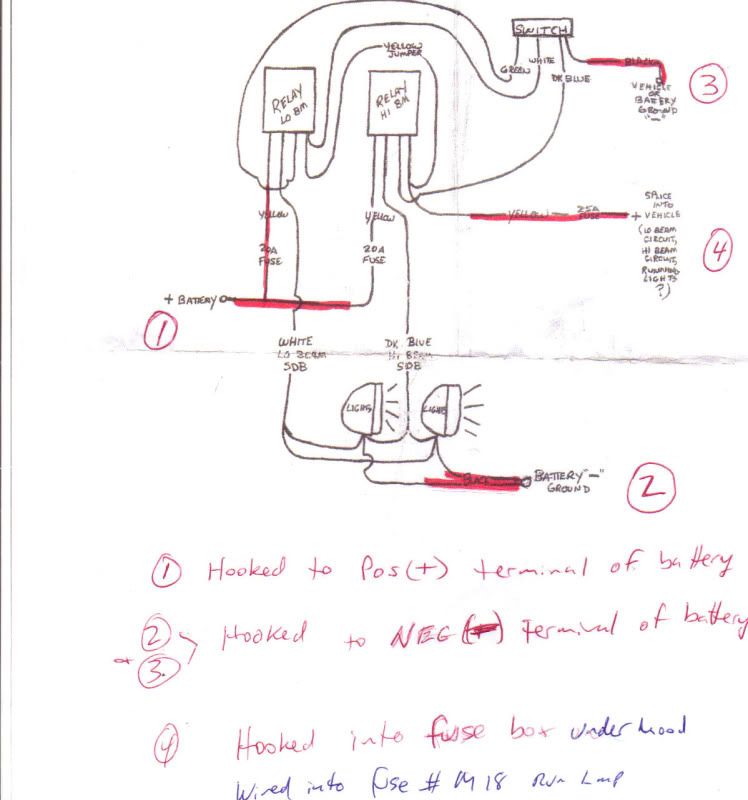 SWITCH
YELLOW
JUMPER
GREEN
WHITE
DK BLUE
BLACK
VEHICLE
OR
BATTERY
GROUND
"-"
3
RELAY
LO BM
RELAY
HI BM
YELLOW
YELLOW
YELLOW
25A
FUSE
+
SPLICE
INTO
VEHICLE
(LO BEAM
CIRCUIT,
HI BEAM
CIRCUIT,
RUNNING
LIGHTS
?)
4
20A
FUSE
20A
FUSE
+ BATTERY
1
WHITE
LO BEAM
SDB
DK BLUE
HI BEAM
SDB
LIGHTS
LIGHTS
BLACK
BATTERY "-"
GROUND
2
1 Hooked to Pos(+) terminal of battery
2
+ 3. Hooked to NEG ( ) Terminal of battery
4 Hooked into fuse box under hood
Wired into fuse # M18 Run Lmp